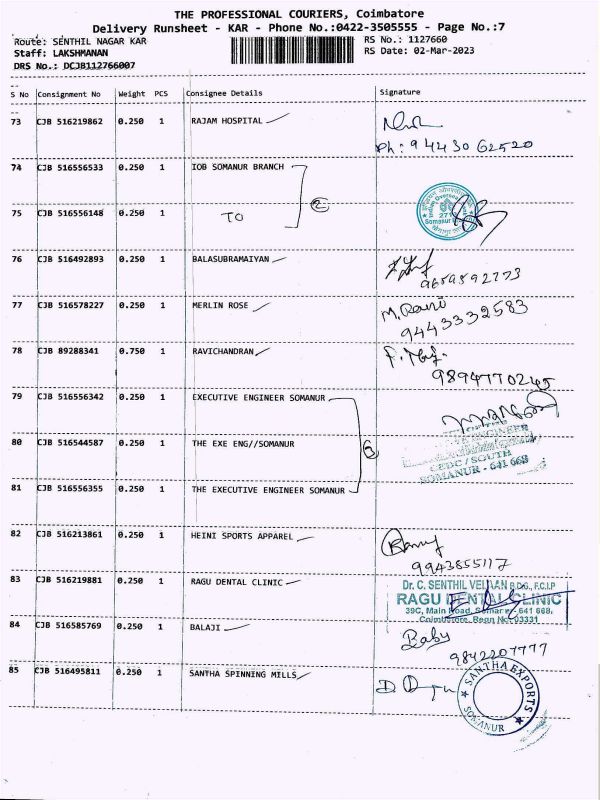 THE PROFESSIONAL COURIERS, Coimbatore
Delivery Runsheet - KAR - Phone No.:0422-3505555 - Page No.:7
Route: SENTHIL NAGAR KAR
RS No.: 1127660
Staff: LAKSHMANAN
RS Date: 02-Mar-2023
DRS No.: DCJB112766007
S No Consignment No Weight PCS Consignee Details Signature
73 CJB 516219862 0.250 1 RAJAM HOSPITAL
Ph: 94430 62520
74 CJB 516556533 0.250 1 IOB SOMANUR BRANCH
2
75 CJB 516556148 0.250 1 TO
Somanur
76 CJB 516492893 0.250 1 BALASUBRAMAIYAN
9659592773
77 CJB 516578227 0.250 1 MERLIN ROSE M. Rani
9443332583
78 CJB 89288341 0.750 1 RAVICHANDRAN
9894770245
79 CJB 516556342 0.250 1 EXECUTIVE ENGINEER SOMANUR
ENGINEER
80 CJB 516544587 0.250 1 THE EXE ENG//SOMANUR
3
CEDC / SOUTH
SOMANUR - 641 668
81 CJB 516556355 0.250 1 THE EXECUTIVE ENGINEER SOMANUR
82 CJB 516213861 0.250 1 HEINI SPORTS APPAREL
9943855117
83 CJB 516219881 0.250 1 RAGU DENTAL CLINIC
Dr. C. SENTHIL VELVAN B.D.S., F.C.I.P
RAGU DENTAL CLINIC
39C, Main Road, Somanur - 641 668,
Coimbatore, Regn No: 03331
84 CJB 516585769 0.250 1 BALAJI Baby
9842207777
85 CJB 516495811 0.250 1 SANTHA SPINNING MILLS
SANTHA EXPORTS
SOMANUR